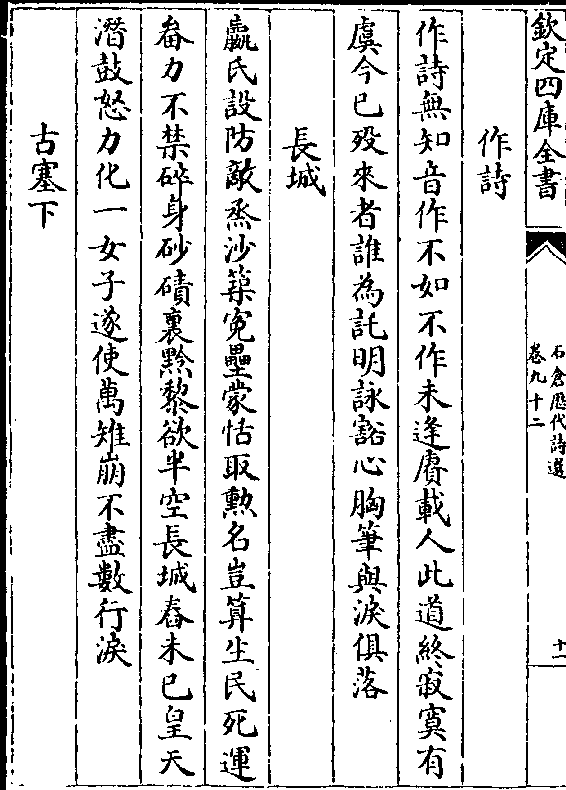 欽定四庫全書
石倉歴代詩選
卷九十二
十一
作詩
作詩無知音作不如不作未逢賡載人此道終寂寞有
虞今已殁來者誰為託明詠豁心胸筆與淚俱落
長城
嬴氏設防敵烝沙築寃壘蒙恬取勲名豈算生民死運
畚力不禁碎身砂磧裏黔黎欲半空長城舂未已皇天
潛鼓怒力化一女子遂使萬雉崩不盡數行淚
古塞下